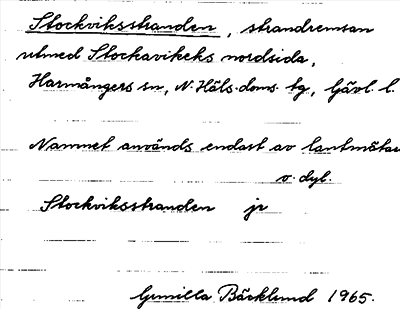 Stockviksstranden, strandremsan
utmed Stockavikeks nordsida,
Harmångers sn, N. Häls. doms. tg, Gävl. l.
Namnet används endast av lantmätare
o. dyl.
Stockviksstranden jr
Gunilla Bäcklund 1965.